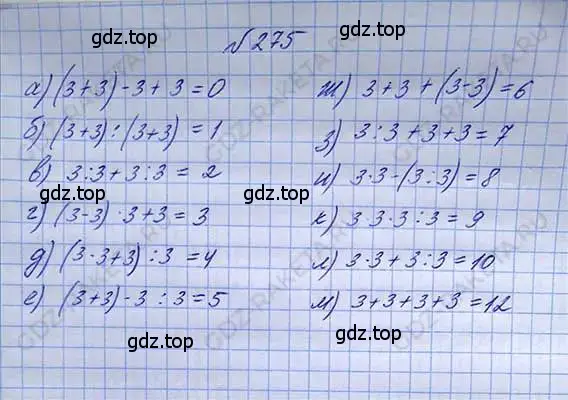 gdz.top gdz.top
№275
а) (3+3)-3+3=0
б) (3+3):(3+3)=1
в) 3:3+3:3=2
gdz.top
г) (3-3)·3+3=3
д) (3·3+3):3=4
е) (3+3)-3:3=5
gdz.top
ж) 3+3+(3-3)=6
з) 3:3+3+3=7
и) 3·3-(3:3)=8
gdz.top
к) 3·3·3:3=9
л) 3·3+3:3=10
м) 3+3+3+3=12
gdz.top
GDZ-RAKETA.RU